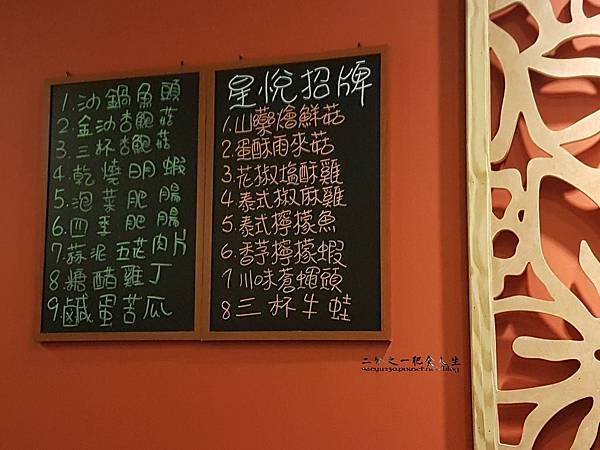 1.沙鍋魚頭
2.金沙杏鮑菇
3.三杯杏鮑菇
4.乾燒明蝦
5.泡菜肥腸
6.四季肥腸
7.蒜泥五花肉片
8.糖醋雞丁
9.鹹蛋苦瓜
星悅招牌
1.山藥燴鮮菇
2.蛋酥雨來菇
3.花椒塩酥雞
4.泰式椒麻雞
5.泰式檸檬魚
6.香芧檸檬蝦
7.川味蒼蠅頭
8.三杯牛蛙